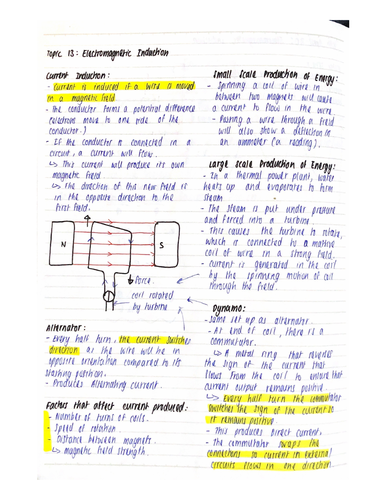 Topic 13: Electromagnetic Induction
Current Induction:
- Current is induced if a wire is moved
in a magnetic field.
- The conductor forms a potential difference
(electrons move to one side of the
conductor.)
- If the conductor is connected in a
circuit, a current will flow.
↳ This current will produce its own
magnetic field
↳ The direction of this new field is
in the opposite direction to the
first field.
N
S
Force
coil rotated
by turbine
Alternator:
- Every half turn, the current switches
direction as the wire will be in
opposite orientation compared to its
starting position.
- Produces Alternating current.
Factors that affect current produced:
- Number of turns of coils.
- Speed of rotation.
- Distance between magnets.
↳ magnetic field strength.
Small Scale Production of Energy:
- Spinning a coil of wire in
between two magnets will cause
a current to flow in the wire
- Passing a wire through a field
will also show a deflection on
an ammeter (a reading).
Large Scale Production of Energy:
- In a thermal power plant, water
heats up and evaporates to form
steam
- The steam is put under pressure
and forced into a turbine
- This causes the turbine to rotate,
which is connected to a massive
coil of wire in a strong field.
- Current is generated in the coil
by the spinning motion of coil
through the field.
Dynamo:
- Same set up as alternator.
- At end of coil, there is a
commutator.
↳ A metal ring that reverses
the sign of the current that
flows from the coil to ensure that
current output remains positive.
↳ Every half turn the commutator
switches the sign of the current so
it remains positive
- This produces Direct current.
- The commutator swaps the
connections so current in external
circuits flows in one direction.